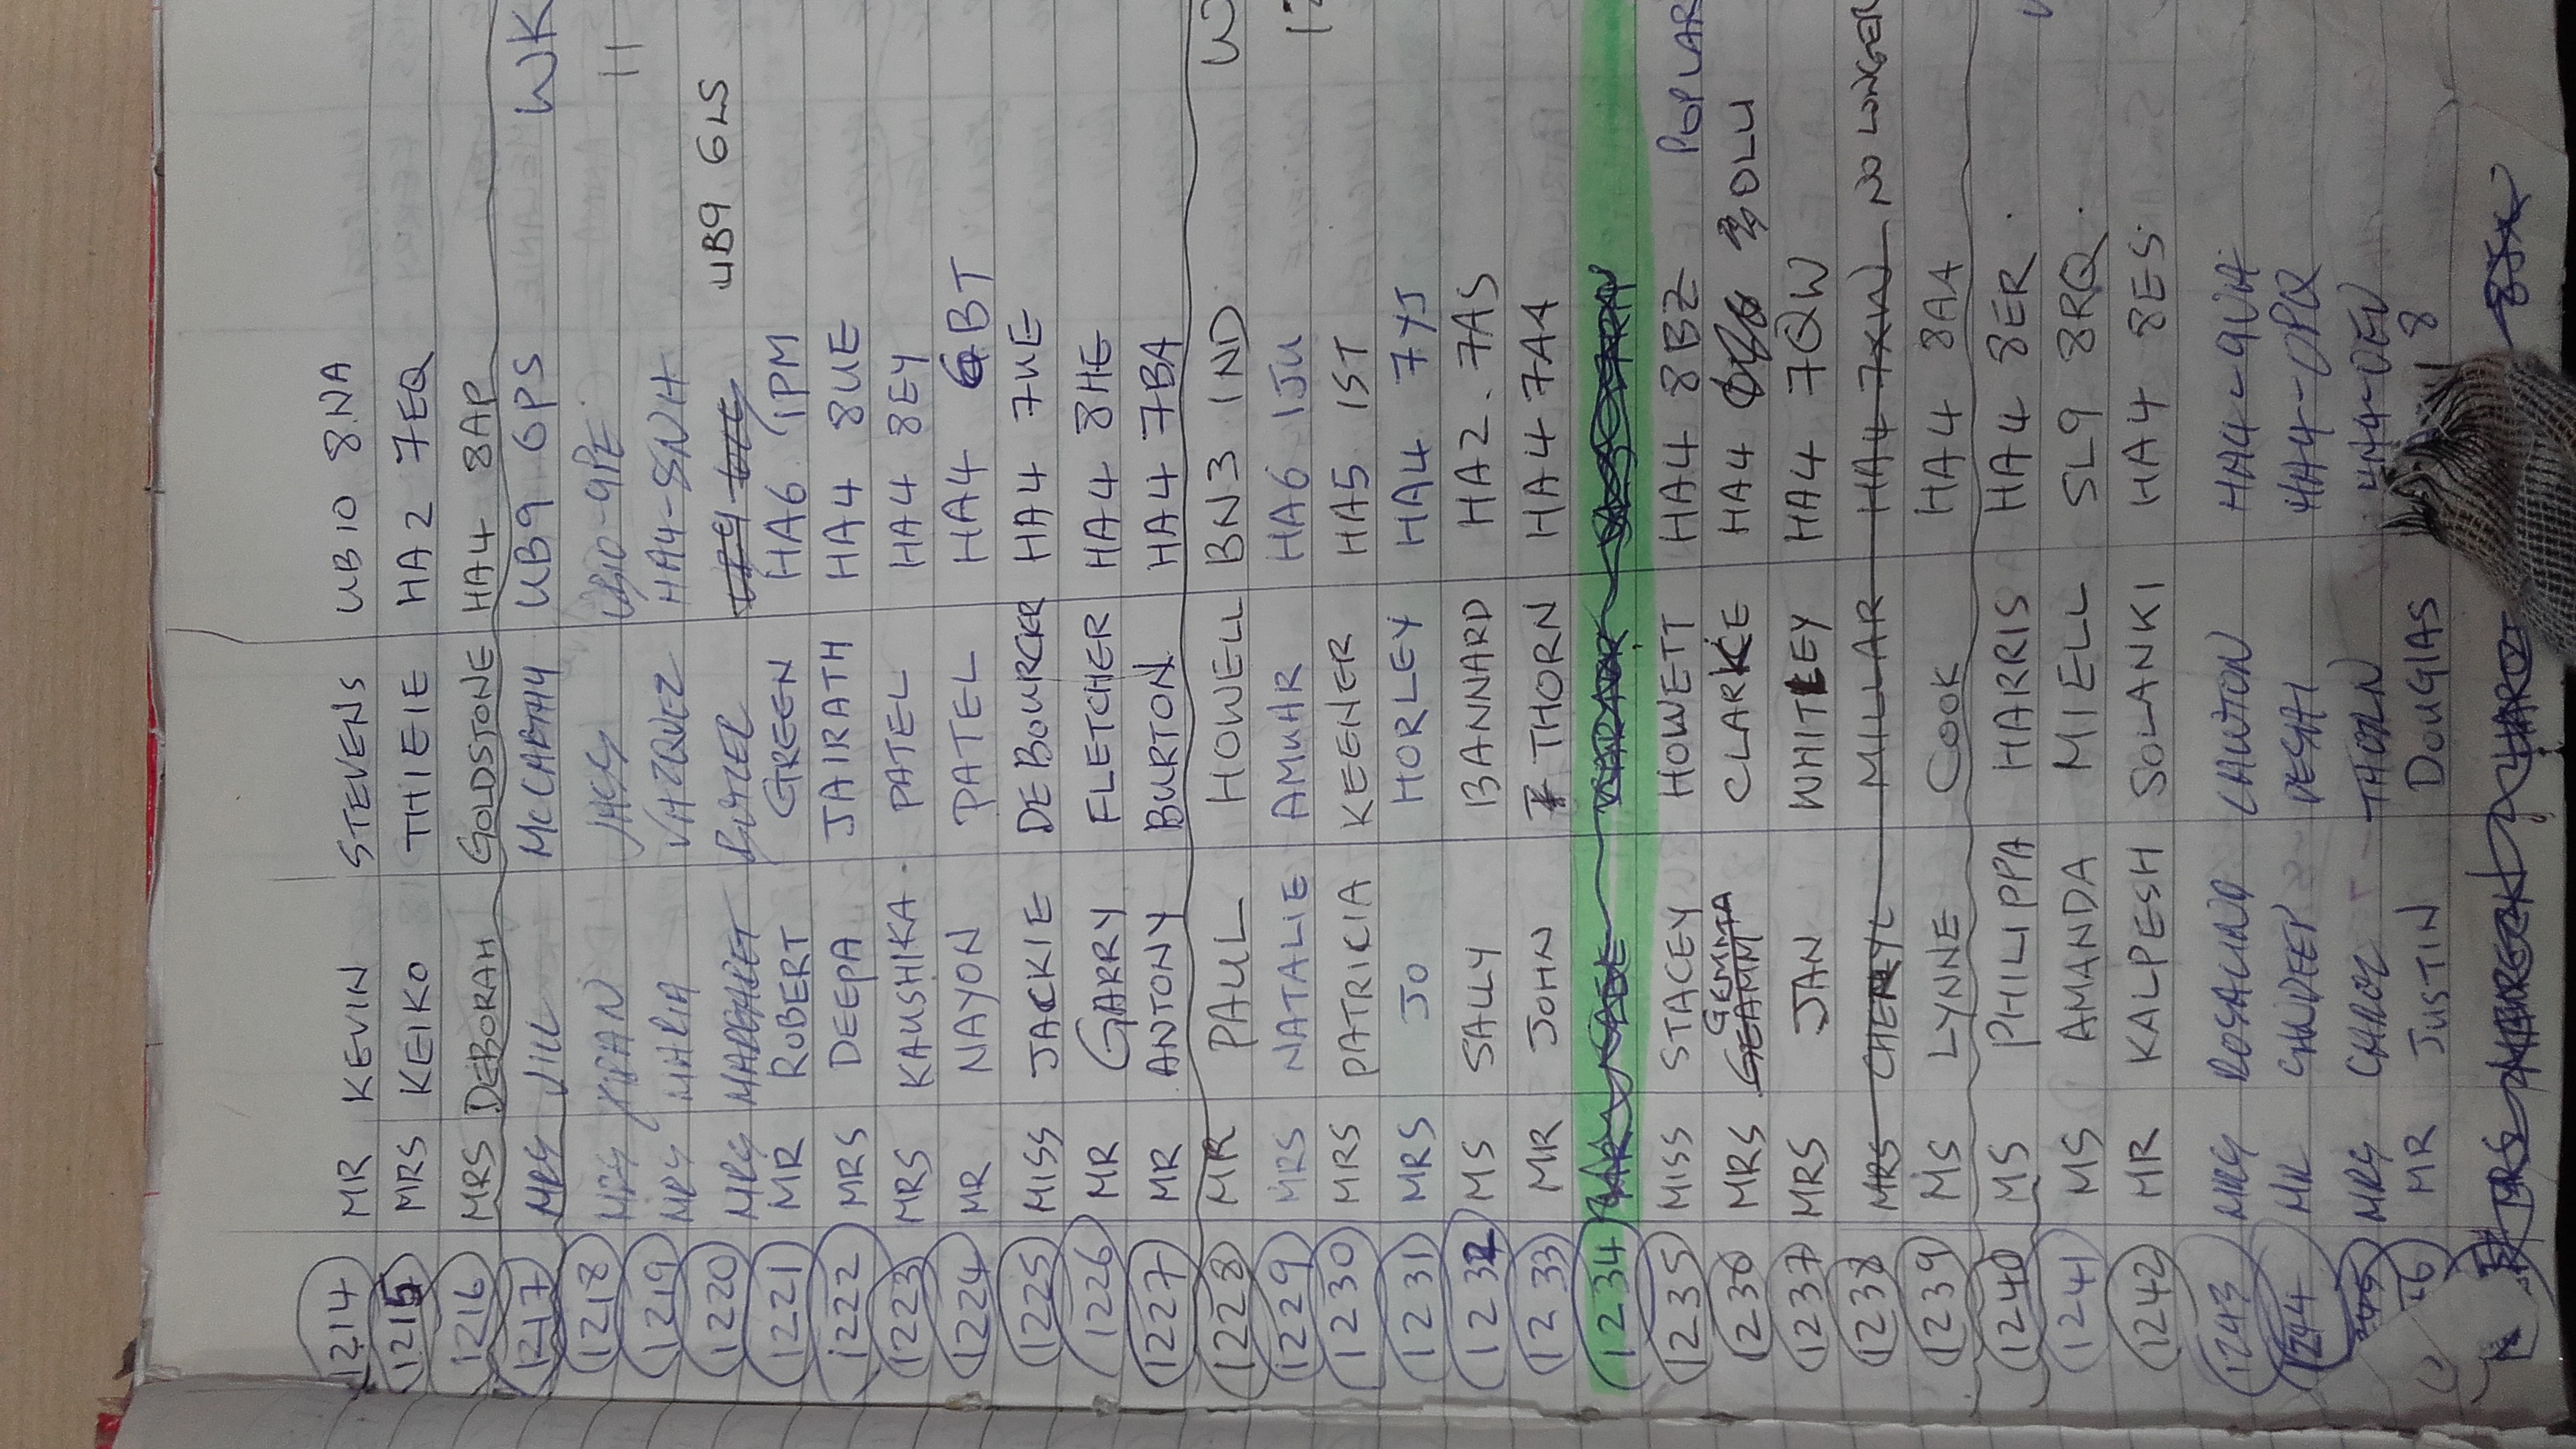 1214 MR KEVIN STEVENS UB10 8NA
1215 MRS KEIKO THIEIE HA2 7EQ
1216 MRS DEBORAH GOLDSTONE HA4 8AP
1217 MRS JILL McCARTHY UB9 6PS WK
1218 MRS KIRAN JASS UB10-9PE 11
1219 MRS MARIA VAZQUEZ HA4-8NH
1220 MRS MARGARET BUTLER UB9 6LS
1221 MR ROBERT GREEN HA6 1PM
1222 MRS DEEPA JAIRATH HA4 8UE
1223 MRS KAUSHIKA PATEL HA4 8EY
1224 MR NAYON PATEL HA4 6BT
1225 MISS JACKIE DE BOURCKER HA4 7UE
1226 MR GARRY FLETCHER HA4 8HE
1227 MR ANTONY BURTON HA4 7BA
1228 MR PAUL HOWELL BN3 1ND W
1229 MRS NATALIE AMUHR HA6 1JU 12
1230 MRS PATRICIA KEENER HA5 1ST
1231 MRS JO HORLEY HA4 7YJ
1232 MS SALLY BANNARD HA2. 7AS
1233 MR JOHN THORN HA4 7AA
1234 MR
1235 MISS STACEY HOWETT HA4 8BZ POPLAR
1236 MRS GEAMM GEMMA CLARKE HA4 0LU
1237 MRS JAN WHITLEY HA4 7QW
1238 MRS CHERYL MILLAR HA4 7XW NO LONGER
1239 MS LYNNE COOK HA4 8AA
1240 MS PHILIPPA HARRIS HA4 8ER
1241 MS AMANDA MIELL SL9 8RQ
1242 MR KALPESH SOLANKI HA4 8ES
1243 MRS ROSALIND LAWTON HA4-9UA
1244 MR SANDEEP DESAI HA4-0PQ
245 MRS CAROL THORN HA4-0EU
6 MR JUSTIN DOUGLAS 8
MRS MAUREEN